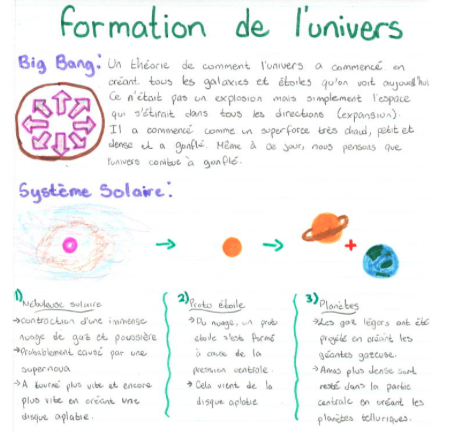 Formation de l'univers
Big Bang: Un théorie de comment l'univers a commencé en
créant tous les galaxies et étoiles qu'on voit aujourd'hui
Ce n'était pas un explosion mais simplement l'espace
qui s'étirait dans tous les directions (expansion).
Il a commencé comme un superforce très chaud, petit et
dense et a gonflé. Même à ce jour, nous pensons que
l'univers continue à gonflé.
Système Solaire:
1) Nébuleuse solaire
→ contraction d'une immense
nuage de gaz et poussière
→ Probablement causé par une
supernova
→ A tourné plus vite et encore
plus vite en créant une
disque aplatie.
2) Proto étoile
→ Du nuage, un proto
étoile s'est formé
à cause de la
pression centrale.
→ Cela vient de la
disque aplatie
3) Planètes
→ Les gaz légers ont été
projeté en créant les
géantes gazeuse.
→ Amas plus dense sont
resté dans la partie
centrale en créant les
planètes telluriques.